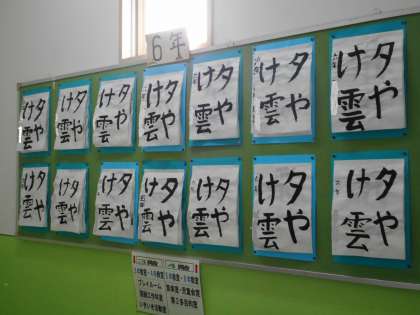 6年
夕や
け雲
夕や
け雲
夕や
け雲
夕や
け雲
夕や
け雲
夕や
け雲
夕や
け雲
夕や
け雲
夕や
け雲
夕や
け雲
夕や
け雲
夕や
け雲
夕や
け雲
夕や
け雲
プレイルーム
第2多目的室